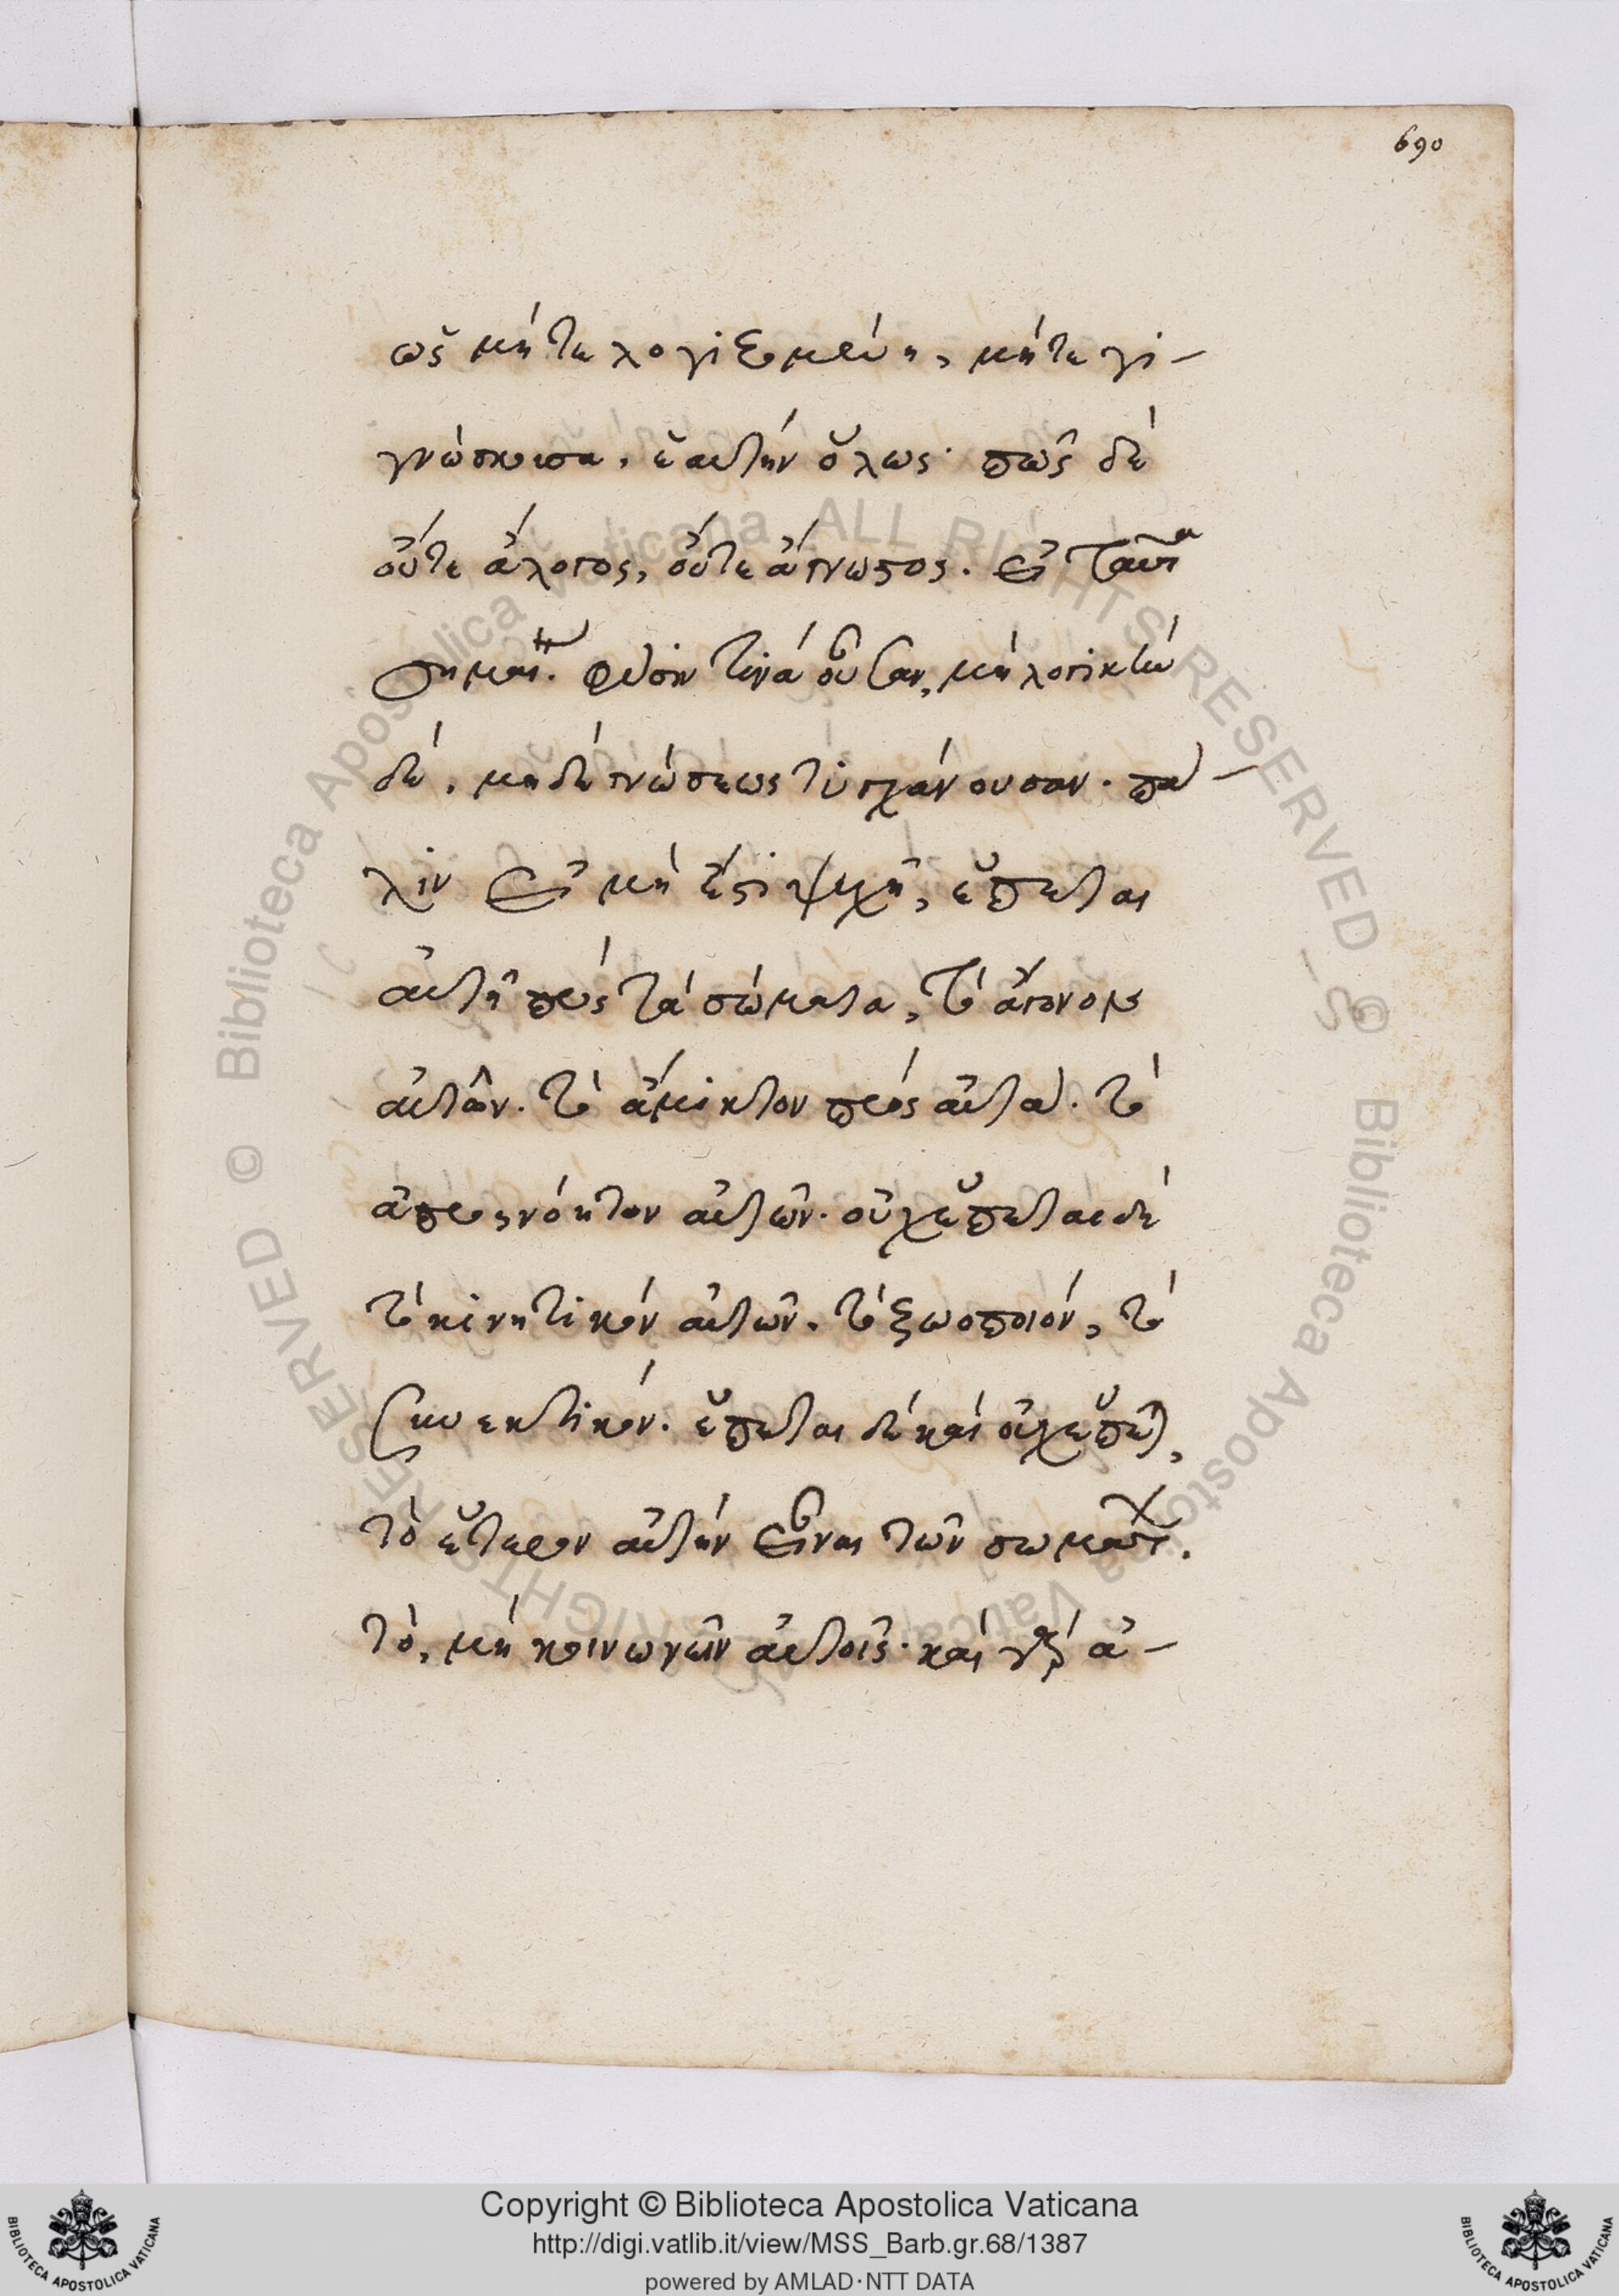 690
ὡς μήτε λογιζομένη, μήτε γι-
γνώσκουσα, ἑαυτὴν ὅλως· πῶς δὲ
οὔτε ἄλογος, οὔτε ἄγνωστος. ἢ ταῦτα
σημαίνει. φύσιν τινὰ οὖσαν, μὴ λογικὴν
δὲ, μηδὲ γνώσεως τυγχάνουσαν. πά-
λιν εἰ μὴ ἔστι ψυχὴ, ἕπεται
αὐτῇ πρὸς τὰ σώματα, τὸ
αὐτῶν. τὸ ἄμικτον πρὸς αὐτά. τὸ
ἀπρονόητον αὐτῶν. οὐχ ἕπεται δὲ
τὸ κινητικὸν αὐτῶν. τὸ ζωοποιὸν, τὸ
συνεκτικόν. ἕπεται δὲ καὶ οὐχ ἕπεται,
τὸ ἕτερον αὐτὴν εἶναι τῶν σωμάτων.
τὸ, μὴ κοινωνεῖν αὐτοῖς· καὶ γὰρ ἀ-
Copyright © Biblioteca Apostolica Vaticana
http://digi.vatlib.it/view/MSS_Barb.gr.68/1387
powered by AMLAD·NTT DATA
BIBLIOTECA APOSTOLICA VATICANA
BIBLIOTECA APOSTOLICA VATICANA